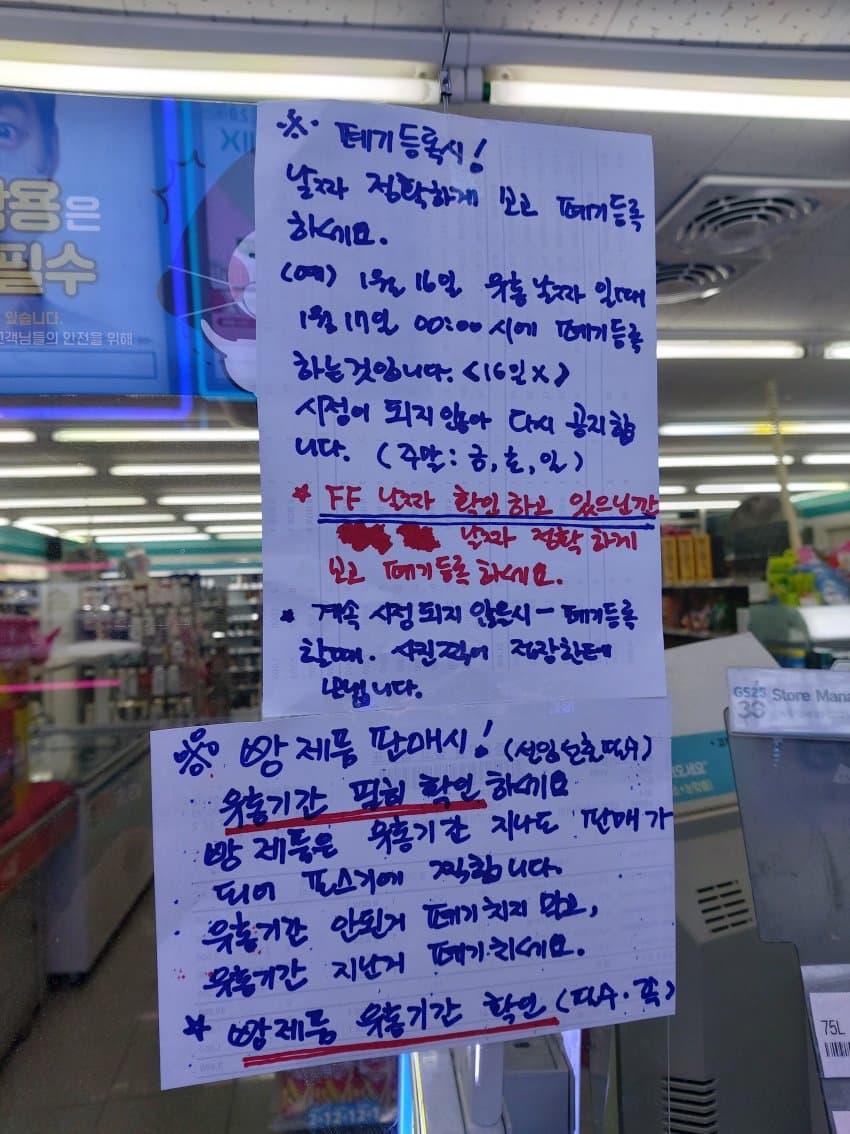 ※ 폐기등록시!
날짜 정확하게 보고 폐기등록
하세요.
(예) 1월 16일 유통날짜 일때
1월 17일 00:00 시에 폐기등록
하는것입니다. <16일 X>
시정이 되지 않아 다시 공지합
니다. (주말: 금, 토, 일)
* FF 날짜 확인하고 있으닌깐
날짜 정확하게
보고 폐기등록하세요.
* 계속 시정되지 않을시 - 폐기등록
할때. 사진찍어 점장한테
보냅니다.
※ 빵 제품 판매시! (선입선출 필수)
유통기간 필히 확인 하세요
빵 제품은 유통기간 지나도 판매가
되어 포스기에 찍힙니다.
유통기간 안된거 폐기치지 말고,
유통기간 지난거 폐기치세요.
* 빵제품 유통기간 확인 (필수·꼭)
용은
필수
있습니다.
고객님들의 안전을 위해
GS25 Store Mana
75L
2-12-12-1